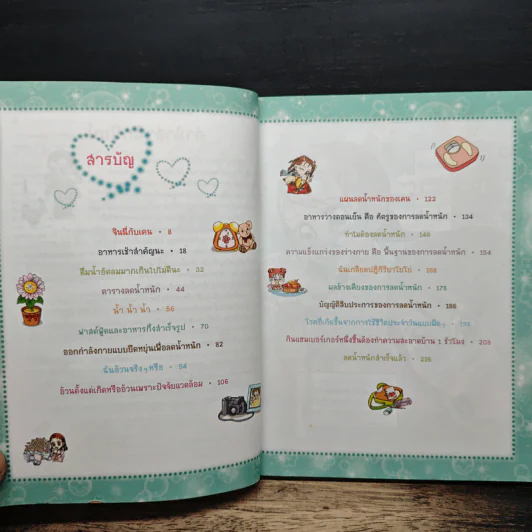 สารบัญ
จินนี่กับเคน • 8
อาหารเช้าสำคัญนะ • 18
ดื่มน้ำอัดลมมากเกินไปไม่ดีนะ • 32
ตารางลดน้ำหนัก • 44
น้ำ น้ำ น้ำ • 56
ฟาสต์ฟู้ดและอาหารกึ่งสำเร็จรูป • 70
ออกกำลังกายแบบยืดหยุ่นเพื่อลดน้ำหนัก • 82
ฉันอ้วนจริงๆ หรือ • 94
อ้วนตั้งแต่เกิดหรืออ้วนเพราะปัจจัยแวดล้อม • 106
แผนลดน้ำหนักของเคน • 122
อาหารว่างตอนเย็น คือ ศัตรูของการลดน้ำหนัก • 134
ทำไมต้องลดน้ำหนัก • 146
ความแข็งแกร่งของร่างกาย คือ พื้นฐานของการลดน้ำหนัก • 154
ฉันเกลียดปฏิกิริยาโยโย่ • 166
ผลข้างเคียงของการลดน้ำหนัก • 176
บัญญัติสิบประการของการลดน้ำหนัก • 186
โรคที่เกิดขึ้นจากการใช้ชีวิตประจำวันแบบผิดๆ •
กินแฮมเบอร์เกอร์หนึ่งชิ้นต้องทำความสะอาดบ้าน 1 ชั่วโมง • 208
ลดน้ำหนักสำเร็จแล้ว •